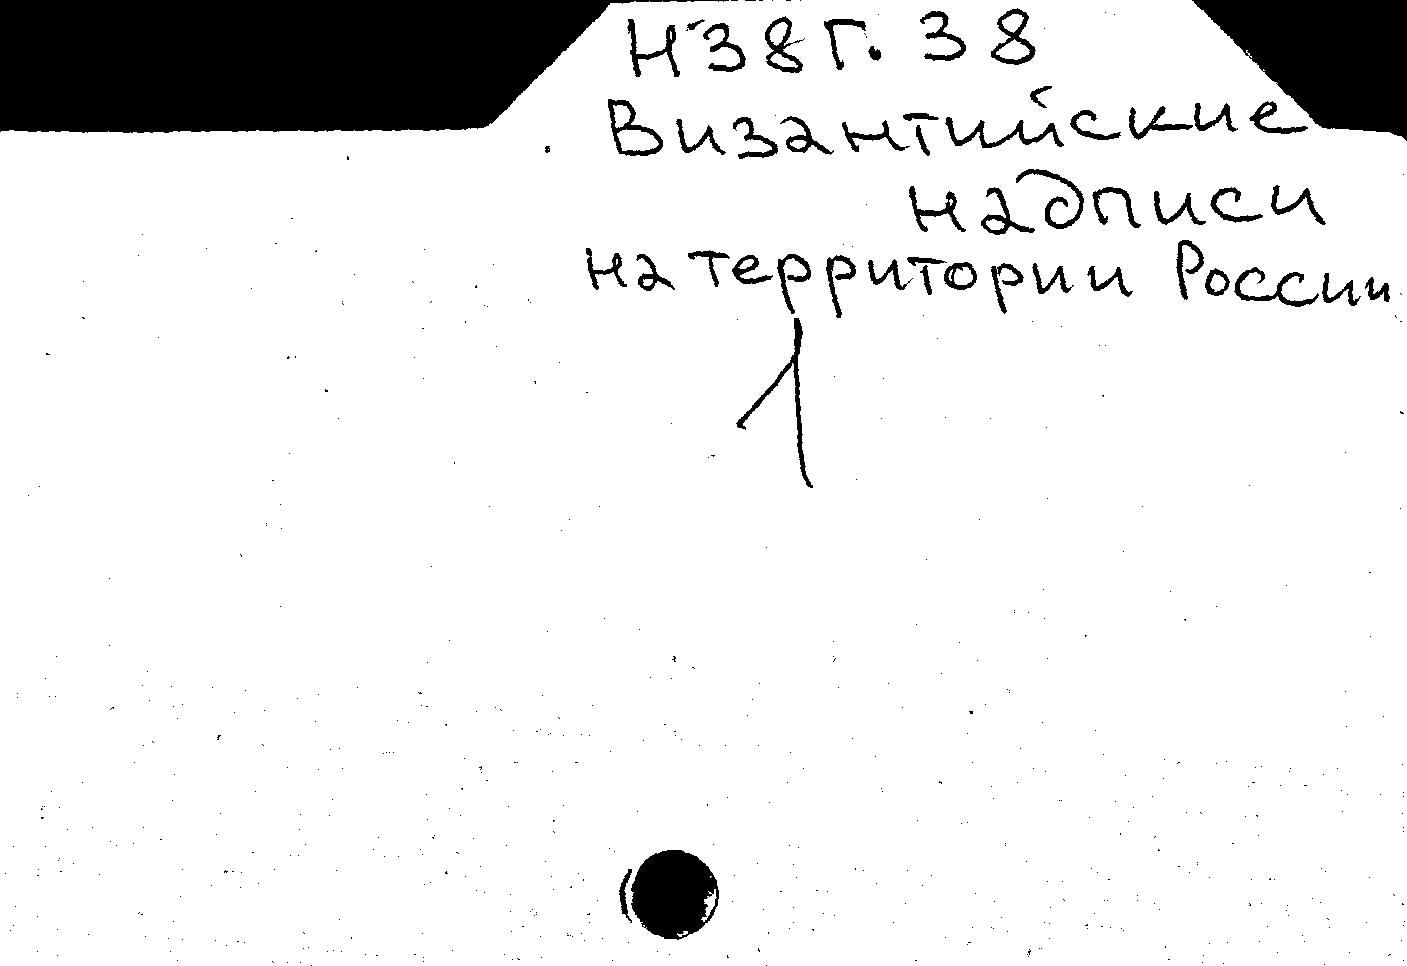 Н38Г. 38
Византийские
надписи
на территории России
1